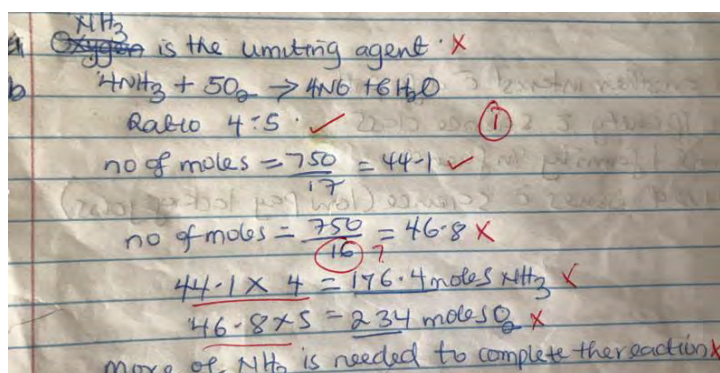 NH3
a Oxygen is the limiting agent. x
b 4NH3 + 5O2 → 4NO + 6H2O
Ratio 4:5. ✓ 1
no of moles = 750/17 = 44.1 ✓
no of moles = 750/16 = 46.8 x
?
44.1 x 4 = 176.4 moles NH3 x
46.8 x 5 = 234 moles O2 x
more of NH3 is needed to complete the reaction x